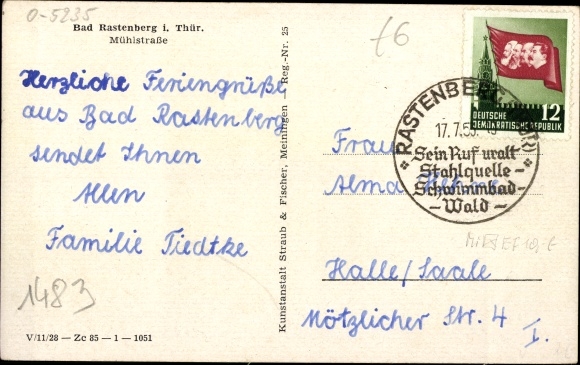 0-5235
Bad Rastenberg i. Thür.
Mühlstraße
Herzliche Feriengrüße
aus Bad Rastenberg
sendet Ihnen
Allen
Familie Tiedtke
1483
V/11/28 — Zc 85 — 1 — 1051
Kunstanstalt Straub & Fischer, Meiningen Reg.-Nr. 25
£6
DEUTSCHE 12
DEMOKRATISCHE REPUBLIK
RASTENBERG
17.7.53
Sein Ruf uralt
Stahlquelle -
Schwimmbad -
- Wald -
Frau
Alma
Halle/Saale
Mötzlicher Str. 4
I.